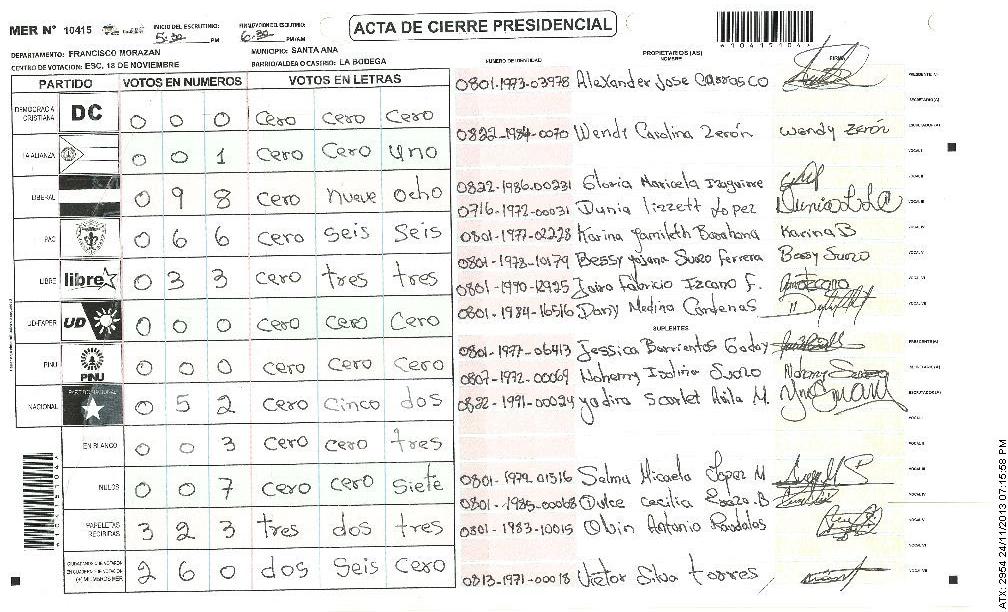 MER Nº 10415
INICIO DEL ESCRUTINIO: 5:30 PM
FINALIZACION DEL ESCRUTINIO: 6:30 PM/AM
ACTA DE CIERRE PRESIDENCIAL
DEPARTAMENTO: FRANCISCO MORAZAN
MUNICIPIO: SANTA ANA
CENTRO DE VOTACION: ESC, 18 DE NOVIEMBRE
BARRIO/ALDEA O CASERIO: LA BODEGA
NUMERO DE IDENTIDAD
PROPIETARIOS (AS)
NOMBRE
FIRMA
PARTIDO VOTOS EN NUMEROS VOTOS EN LETRAS
DEMOCRACIA CRISTIANA DC 0 0 0 cero cero cero
LA ALIANZA 0 0 1 cero cero uno
LIBERAL 0 9 8 cero nueve ocho
PAC 0 6 6 cero seis seis
LIBRE libre 0 3 3 cero tres tres
UD-FAPER UD 0 0 0 cero cero cero
PINU PINU 0 0 0 cero cero cero
NACIONAL 0 5 2 cero cinco dos
EN BLANCO 0 0 3 cero cero tres
NULOS 0 0 7 cero cero siete
PAPELETAS RECIBIDAS 3 2 3 tres dos tres
2 6 0 dos seis cero
0801-1973-03978 Alexander Jose Carrasco
PRESIDENTE (A)
SECRETARIO (A)
0822-1984-0070 Wendy Carolina Zerón Wendy Zerón
ESCRUTADOR (A)
VOCAL I
0822-1986-00231 Gloria Maricela Izaguirre
VOCAL II
0716-1972-00031 Dunia lizzett Lopez
VOCAL III
0801-1977-02228 Karina Yamileth Barahona Karina B
VOCAL IV
0801-1978-10179 Bessy Yojana Suazo Ferrera Bessy Suazo
VOCAL V
0801-1990-12925 Jairo Fabricio Izcano F.
VOCAL VI
0801-1984-16516 Dany Medina Cardenas
VOCAL VII
SUPLENTES
0801-1977-06413 Jessica Barrientos Godoy
PRESIDENTE (A)
0807-1972-00069 Nohemy Isolina Suazo
SECRETARIO (A)
0822-1991-00024 Yadira Scarlet Avila M.
ESCRUTADOR (A)
VOCAL I
VOCAL II
0801-1979-01516 Selma Micaela Lopez M
VOCAL III
0801-1985-00068 Dulce Cecilia B
VOCAL IV
0801-1983-10015 Obin Antonio
VOCAL V
VOCAL VI
0813-1971-00018 Victor Silva torres
VOCAL VII
ATX: 2954 24/11/2013 07:15:58 PM